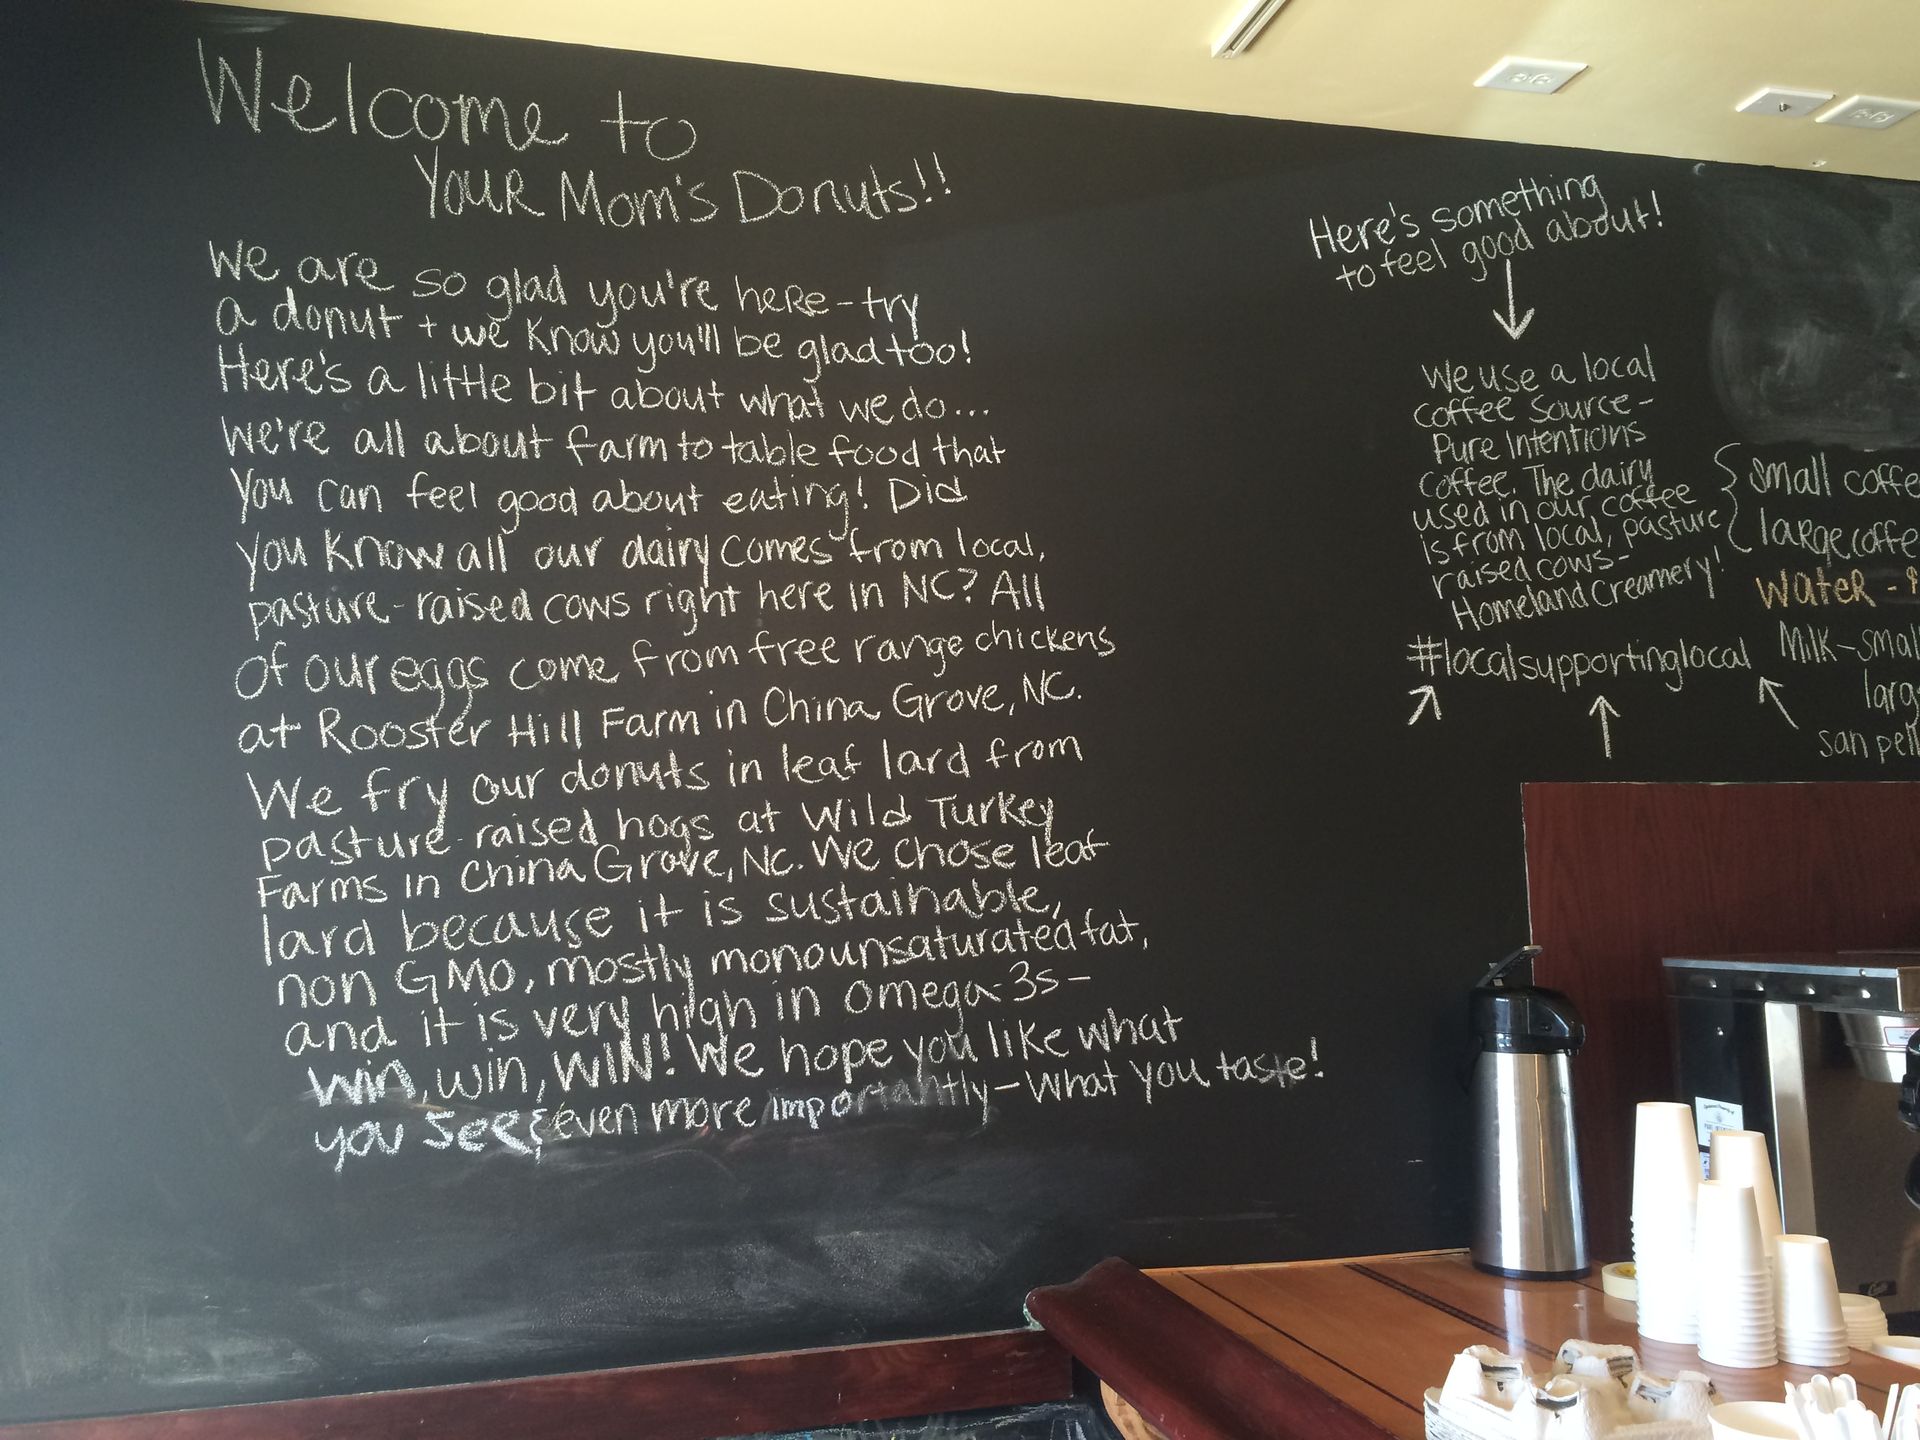 Welcome to
Your Mom's Donuts!!
We are so glad you're here - try
a donut + we know you'll be glad too!
Here's a little bit about what we do...
We're all about farm to table food that
you can feel good about eating! Did
you know all our dairy comes from local,
pasture-raised cows right here in NC? All
of our eggs come from free range chickens
at Rooster Hill Farm in China Grove, NC.
We fry our donuts in leaf lard from
pasture-raised hogs at Wild Turkey
Farms in China Grove, NC. We chose leaf
lard because it is sustainable,
non GMO, mostly monounsaturated fat,
and it is very high in omega-3s-
win, win, WIN! We hope you like what
you see & even more importantly - what you taste!
Here's something
to feel good about!
We use a local
coffee source-
Pure Intentions
Coffee. The dairy
used in our coffee
is from local, pasture
raised cows-
Homeland Creamery!
#localsupportinglocal
small coffe
large coffe
water - $
Milk - small
larg
san pell